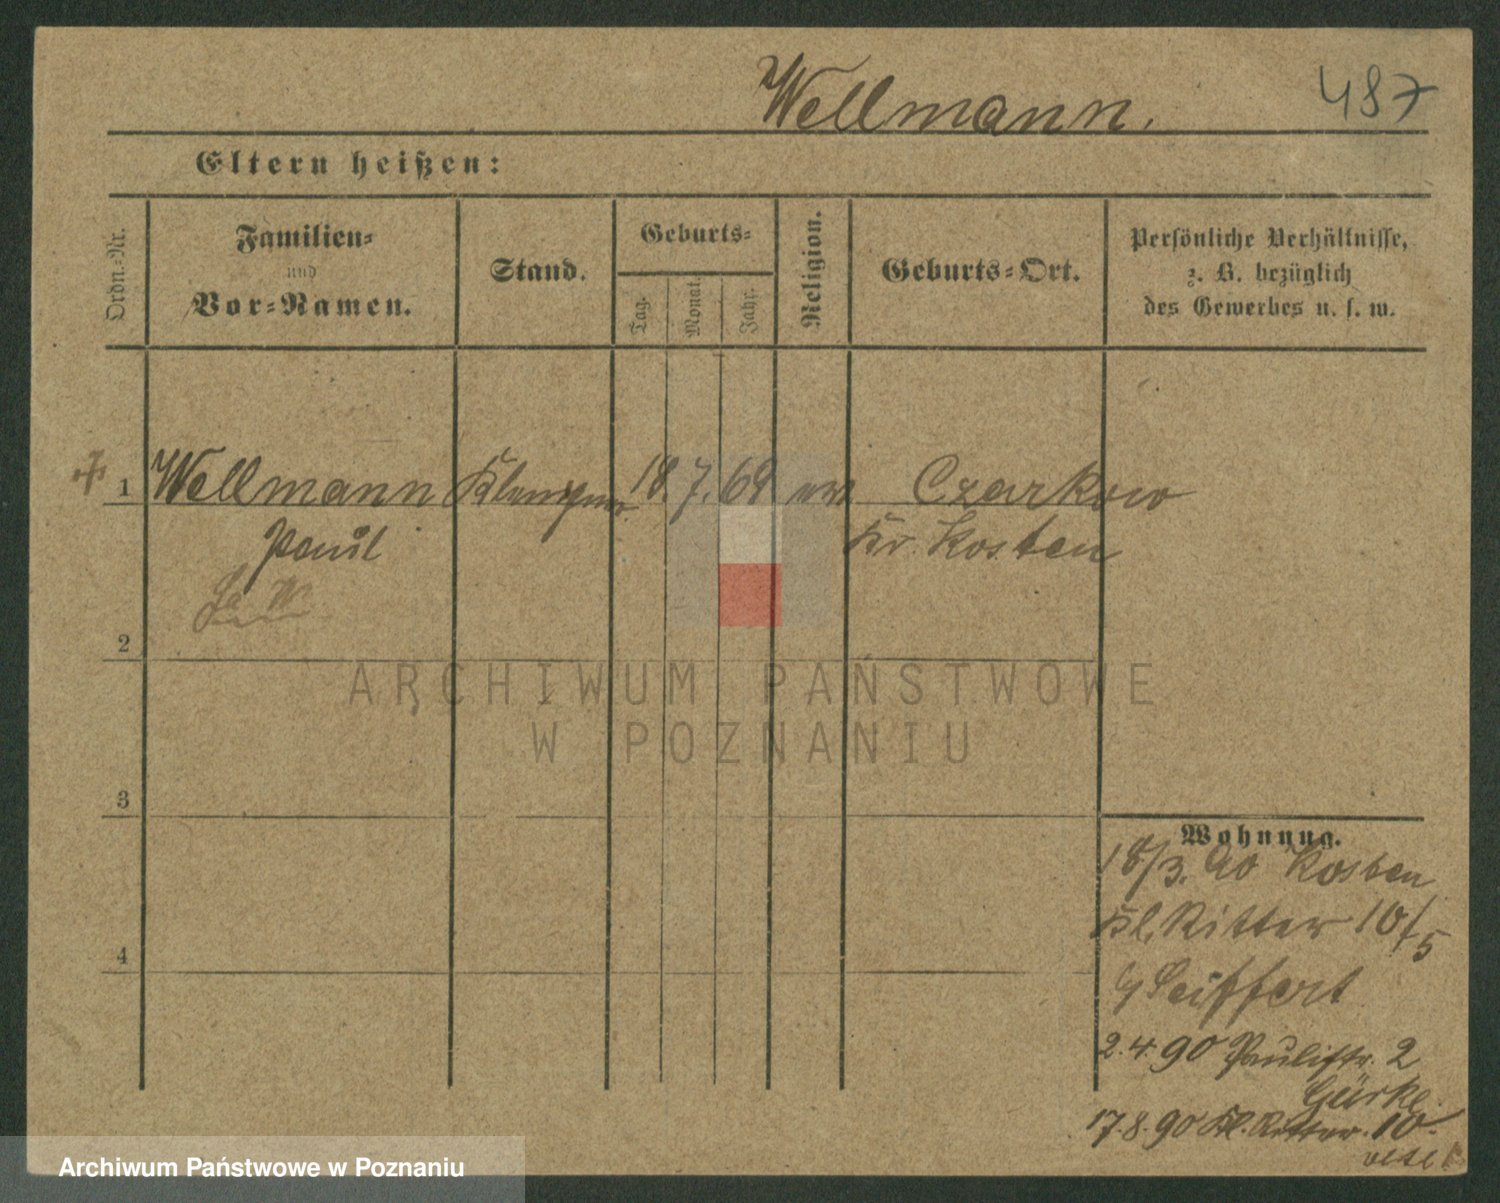 Wellmann.
487
Eltern heißen:
Ordn.-Nr.
Familien-
und
Vor-Namen.
Stand.
Geburts-
Tag.
Monat.
Jahr.
Religion.
Geburts-Ort.
Persönliche Verhältnisse,
z. B. bezüglich
des Gewerbes u. s. w.
1 Wellmann Klempner 18. 7. 69 Czarkow
Paul Kr. Kosten
2
3
4
Wohnung.
18/3. 90 Kosten
Kl. Ritter 10/5
Seiffert
2.4.90 Paulistr. 2
Gürke.
17.8.90 Kl. Ritter. 10.
ARCHIWUM PAŃSTWOWE
W POZNANIU
Archiwum Państwowe w Poznaniu